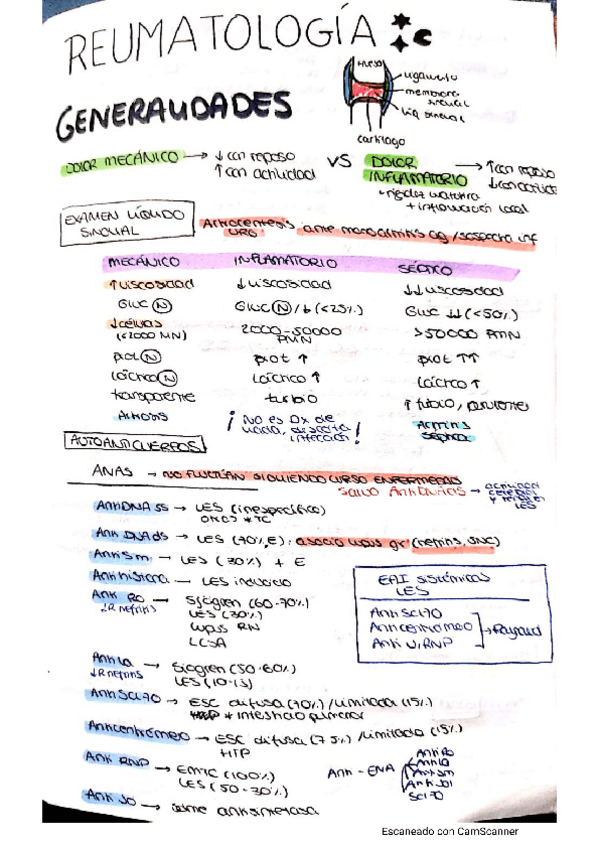 REUMATOLOGÍA
GENERALIDADES
hueso
ligamento
membrana sinovial
liq sinovial
cartílago
DOLOR MECÁNICO → ↓ con reposo
↑ con actividad
VS DOLOR INFLAMATORIO → ↑ con reposo
↓ con activid
rigidez matutina
+ inflamación local
EXAMEN LÍQUIDO SINOVIAL
Artrocentesis URG ante monoartritis ag / sospecha inf
MECÁNICO INFLAMATORIO SÉPTICO
↑ viscosidad ↓ viscosidad ↓↓ viscosidad
Gluc (N) Gluc (N)/↓ (<25%) Gluc ↓↓ (<50%)
↓ células (<2000 MN) 2000-50000 PMN >50000 PMN
prot (N) prot ↑ prot ↑↑
láctico (N) láctico ↑ láctico ↑
transparente turbio ↑ turbio, purulento
Artrosis ¡No es Dx de nada, descarta infección! Artritis séptica
AUTOANTICUERPOS
ANAS → NO FLUCTÚAN SIGUIENDO CURSO ENFERMEDAD
SALVO AntiDNAds →
AntiDNA ss → LES (inespecífico)
Anti DNAds → LES (70%, E). asocia lupus gr (nefritis, SNC)
Anti Sm → LES (30%) + E
Anti histona → LES inducido
Anti RO → Sjögren (60-70%)
↓R nefritis LES (30%)
lupus RN
LCSA
EAI SISTÉMICAS
LES
Anti Scl70
Anticentrómero → Raynaud
Anti U1RNP
Anti La → Sjogren (50-60%)
↓R nefritis LES (10-15)
Anti Scl 70 → ESC difusa (70%) / limitada (15%)
* intersticio pulmonar
Anticentrómero → ESC difusa (75%) / limitada (15%)
HTP
Anti RNP → EMTC (100%)
LES (50-30%)
Anti - ENA
Anti Ro
Anti La
Anti Sm
Anti Jo1
Scl 70
Anti JO → sdme antisintetasa
Escaneado con CamScanner